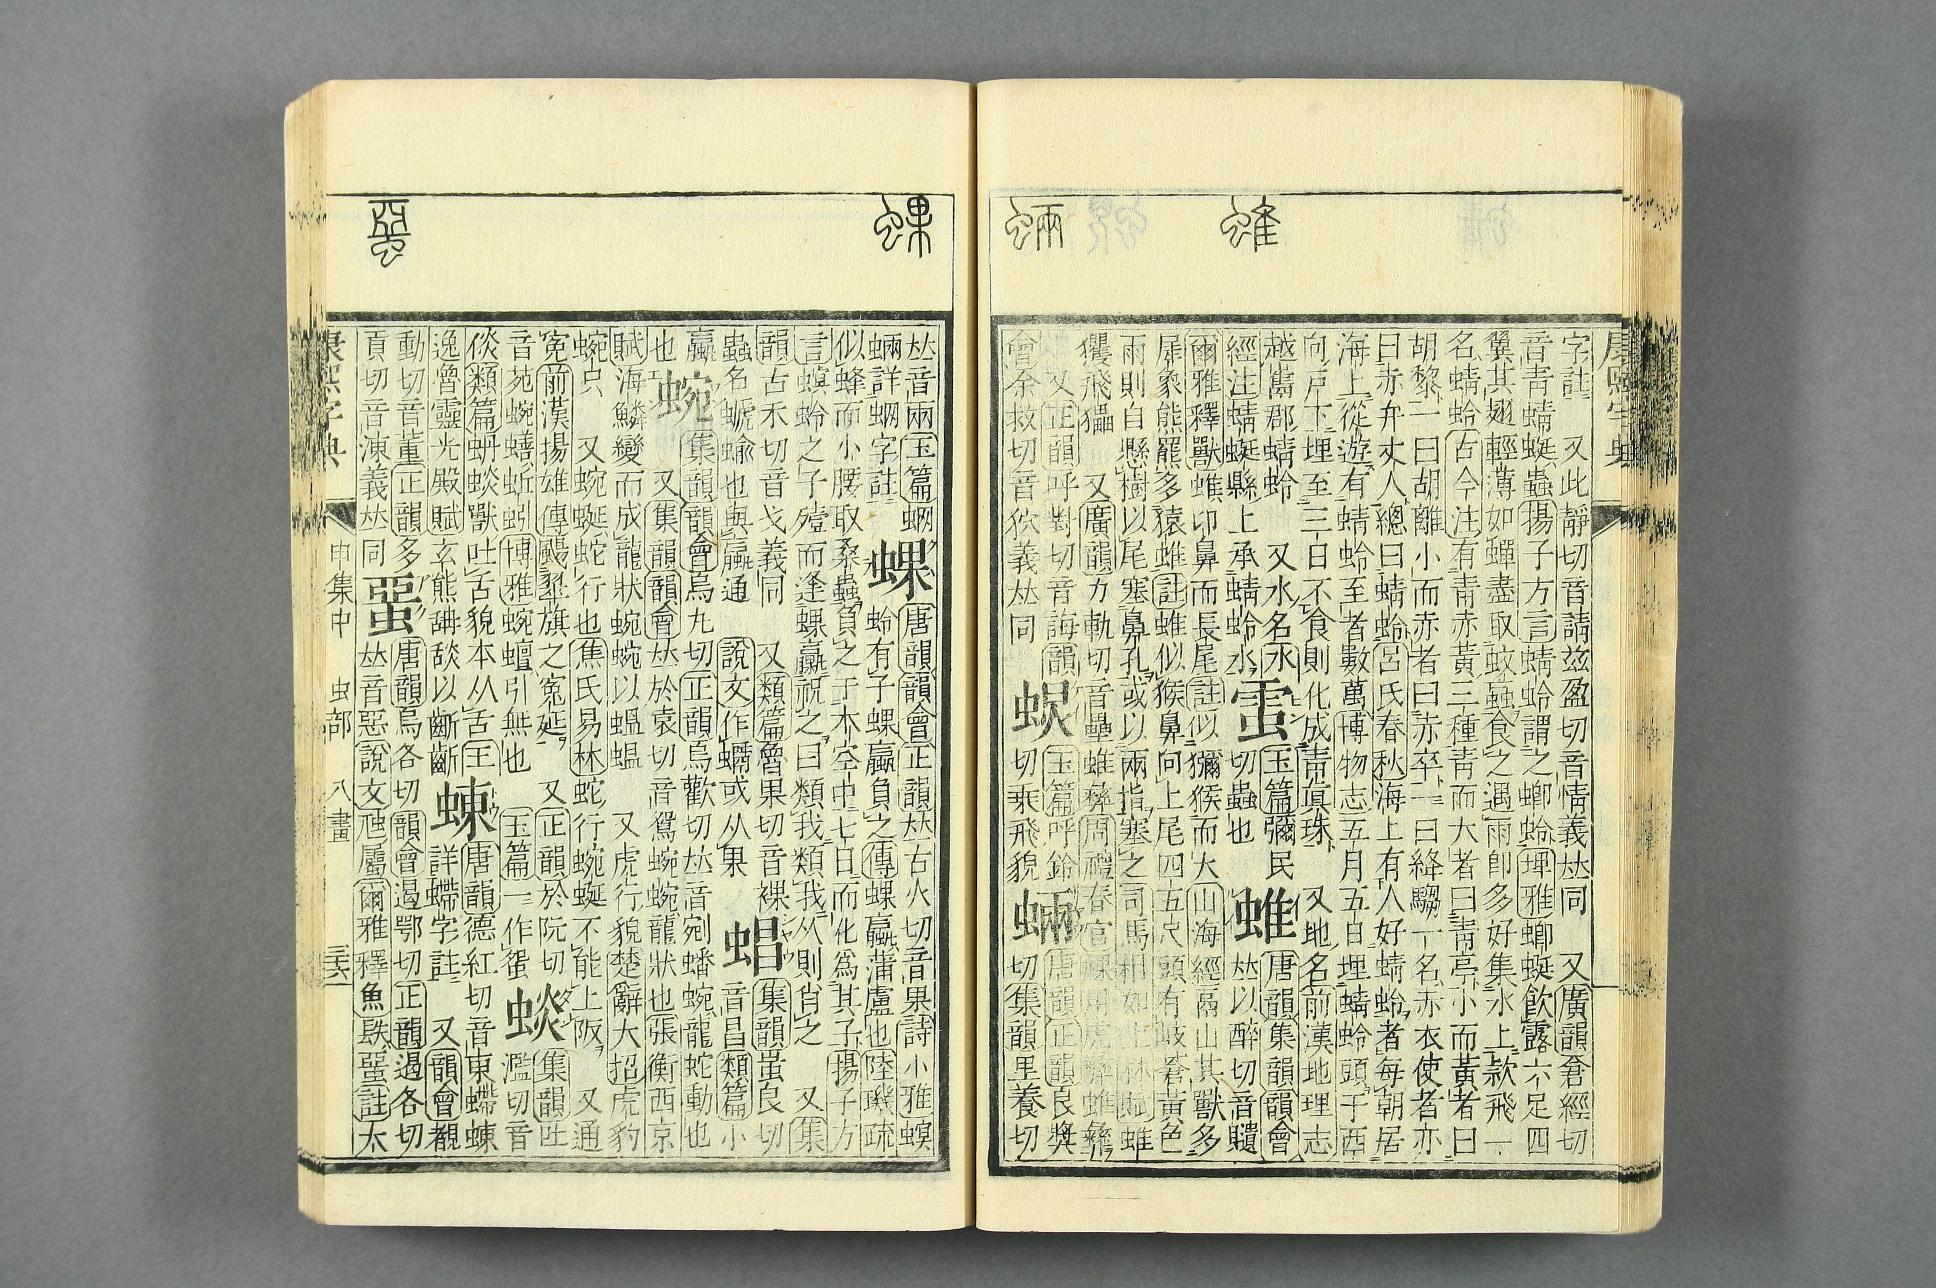 康熙字典
蜼
蜽
字註 又此靜切音請茲盈切音情義𠀤同 又廣韻倉經切
音靑蜻蜓蟲揚子方言蜻蛉謂之蝍蛉埤雅蝍蜓飮露六足四
翼其翅輕薄如蟬晝取蚊蝱食之遇雨卽多好集水上款飛一
名蜻蛉古今注有靑赤黃三種靑而大者曰靑亭小而黃者曰
胡黎一曰胡離小而赤者曰赤卒一曰絳騶一名赤衣使者亦
曰赤弁丈人總曰蜻蛉呂氏春秋海上有人好蜻蛉者每朝居
海上從遊有蜻蛉至者數萬博物志五月五日埋蜻蛉頭于西
向戸下埋至三日不食則化成靑眞珠 又地名前漢地理志
越巂郡蜻蛉 又水名水
經注蜻蜓縣上承蜻蛉水
玉篇彌民
切蟲也
蜼
唐韻集韻韻會
𠀤以醉切音
爾雅釋獸蜼卬鼻而長尾註似獼猴而大山海經鬲山其獸多
犀象熊羆多猿蜼註蜼似猴鼻向上尾四五尺頭有岐蒼黃色
雨則自懸樹以尾塞鼻孔或以兩指塞之司馬相如上林賦蜼
玃飛蠝 又廣韻力軌切音壘蜼彝周禮春官祼用虎彝蜼彝
又正韻呼對切音誨韻
會余救切音狖義𠀤同
玉篇呼鈴
切乘飛貌
蜽
唐韻正韻良獎
切集韻里養切
蜾
蝁
𠀤音兩玉篇蝄
蜽詳蝄字註
蜾
唐韻韻會正韻𠀤古火切音果詩小雅螟
蛉有子蜾蠃負之傳蜾蠃蒲盧也陸璣疏
似蜂而小腰取桑蟲負之于木空中七日而化爲其子揚子方
言螟蛉之子殪而逢蜾蠃祝之曰類我類我久則肖之 又集
韻古禾切音戈義同 又類篇魯果切音裸
蟲名螔蝓也與蠃通 說文作蠣或从果
集韻蚩良切
音昌類篇小
蠃
也
蜿
集韻韻會烏九切正韻烏歡切𠀤音剜蟠蜿龍蛇動也
又集韻韻會𠀤於袁切音鴛蜿蜿龍狀也張衡西京
賦海鱗變而成龍狀蜿蜿以蝹蝹 又虎行貌楚辭大招虎豹
蜿只 又蜿蜒蛇行也焦氏易林蛇行蜿蜒不能上阪 又通
寃前漢揚雄傳颺翠旗之寃延 又正韻於阮切
音苑蜿蟮蚯蚓博雅蜿蟺引無也 玉篇一作蛩
集韻吐
濫切音
倓類篇蚦䗊獸吐舌貌本从舌王
逸魯靈光殿賦玄熊蚦舕以齗齗
蝀
唐韻德紅切音東螮蝀
詳螮字註 又韻會覩
動切音董正韻多
貢切音凍義𠀤同
蝁
唐韻烏各切韻會遏鄂切正韻遏各切
𠀤音惡說文虺屬爾雅釋魚镻蝁註大
康熙字典 申集中 虫部 八畫